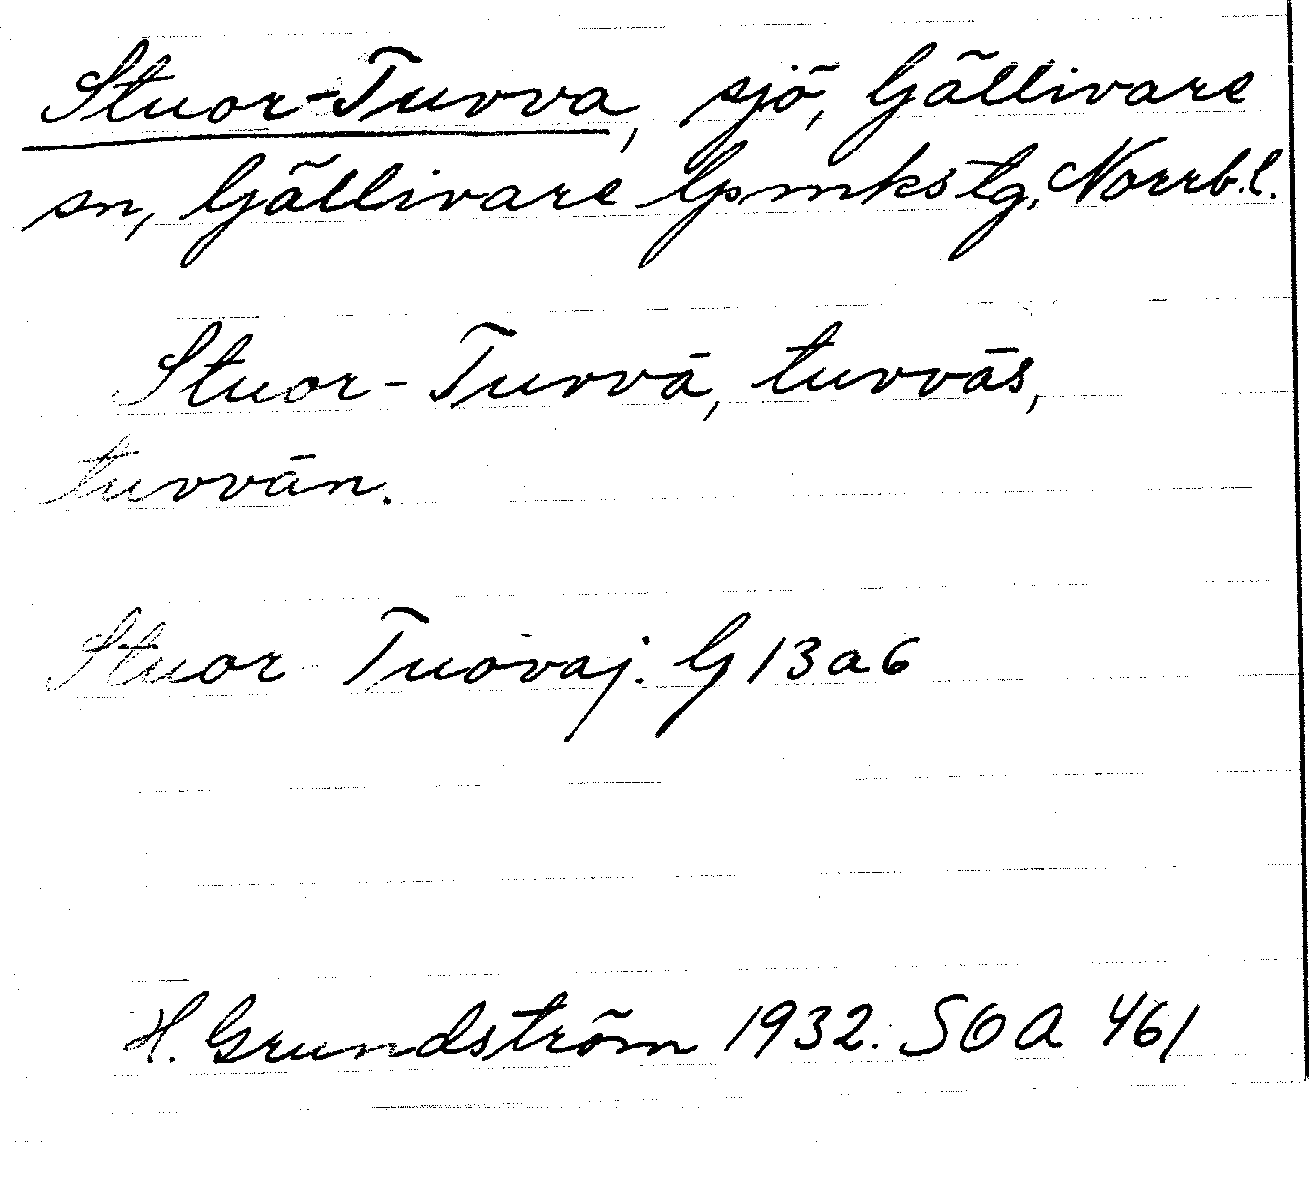 Stuor-Tuvva, sjö, Gällivare
sn, Gällivare lpmkstg, Norrb.l.
Stuor-Tuvvā, tuvvās,
tuvvān.
Stuor Tuovaj. G 13 a 6
H. Grundström 1932. SOA 461